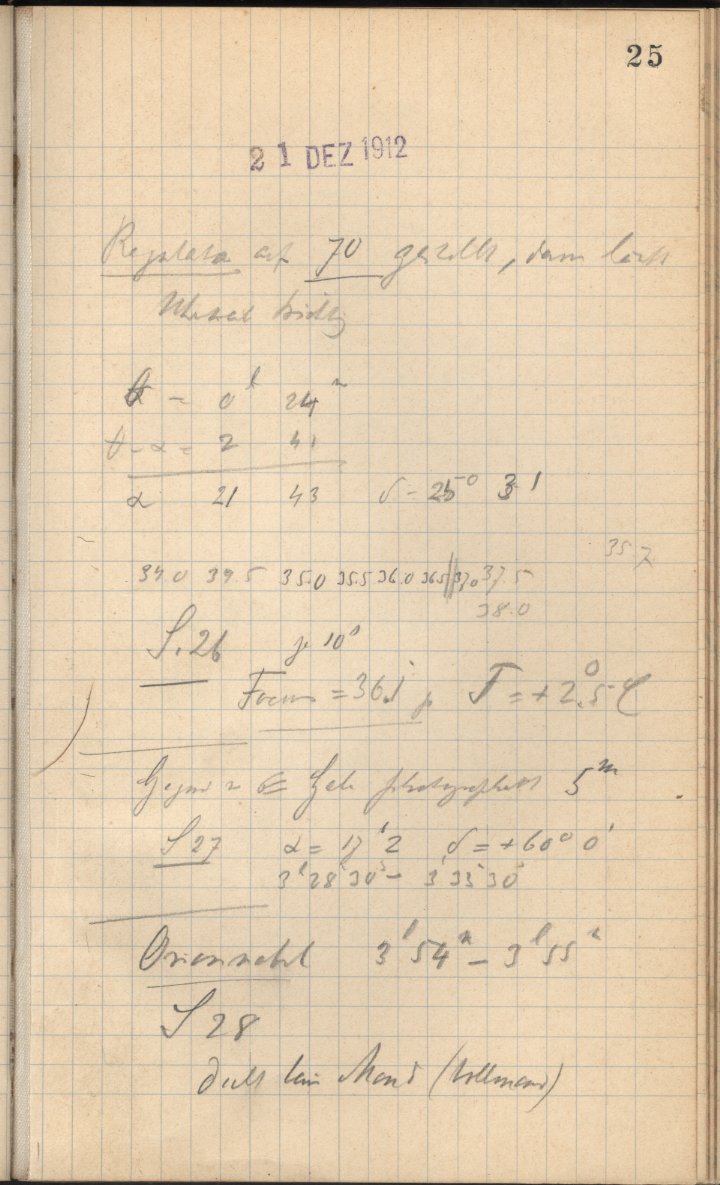 25
21 DEZ 1912
Regulator auf 70 gestellt, dann läuft
Uhrwerk
θ = 0h 24m
θ-α = 2 41
α 21 43 δ = 25° 31
35.7
34.0 34.5 35.0 35.5 36.0 36.5 || 37.0 37.5
38.0
S. 26 je 10s
Focus = 36.1 T = +2.5°C
Gegend photographiert 5m
S 27 α = 17h 2 δ = +60° 0'
3h 28m 30s - 3h 33m 30s
Orionnebel 3h 54m - 3h 55m
S 28
beim Mond (Vollmond)